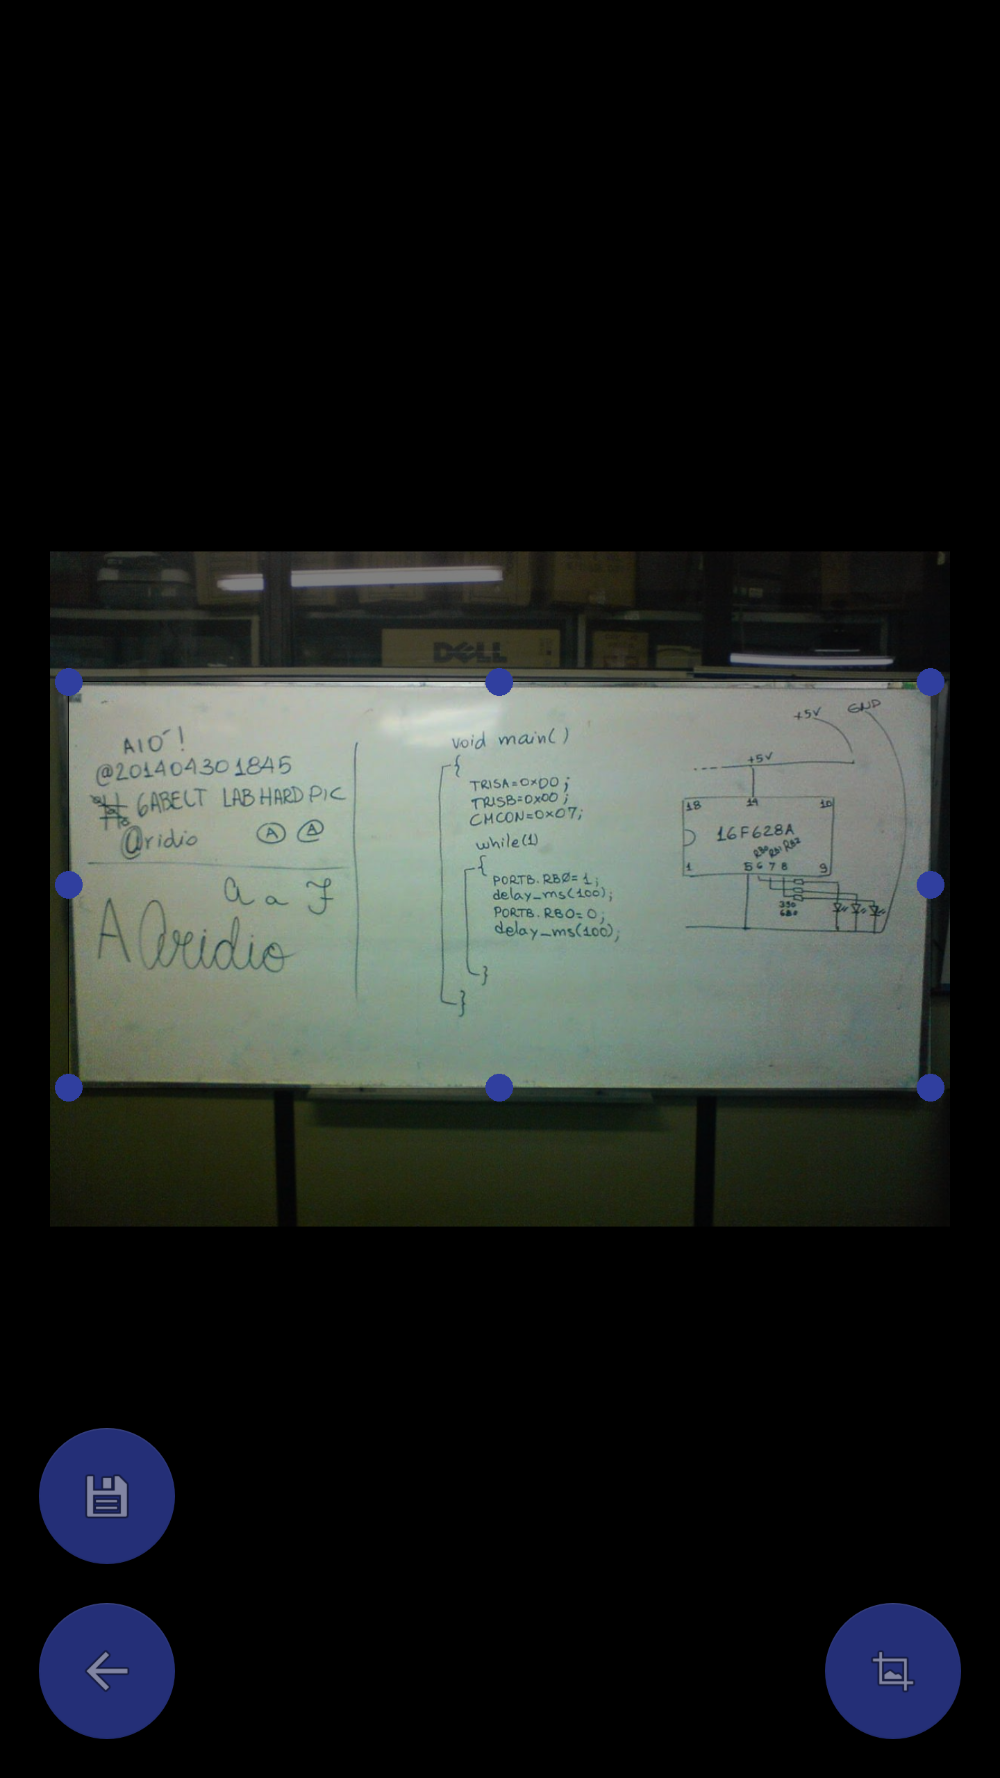 DELL
AIO'!
@201404301845
# 6ABELT LAB HARD PIC
@ridio A A
a a F
A Aridio
void main()
{
TRISA=0x00;
TRISB=0x00;
CMCON=0x07;
while(1)
{
PORTB.RB0=1;
delay_ms(100);
PORTB.RB0=0;
delay_ms(100);
}
}
+5V GND
+5V
18 14 10
16F628A
RB0 RB1 RB2
1 5 6 7 8 9
680